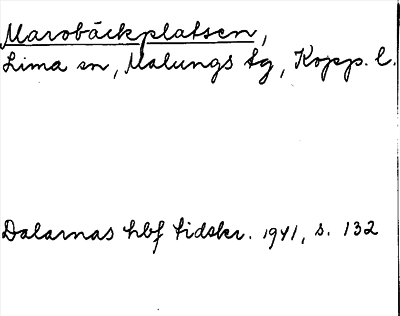 Marobäckplatsen,
Lima sn, Malungs tg, Kopp. l.
Dalarnas hbf tidskr. 1941, s. 132